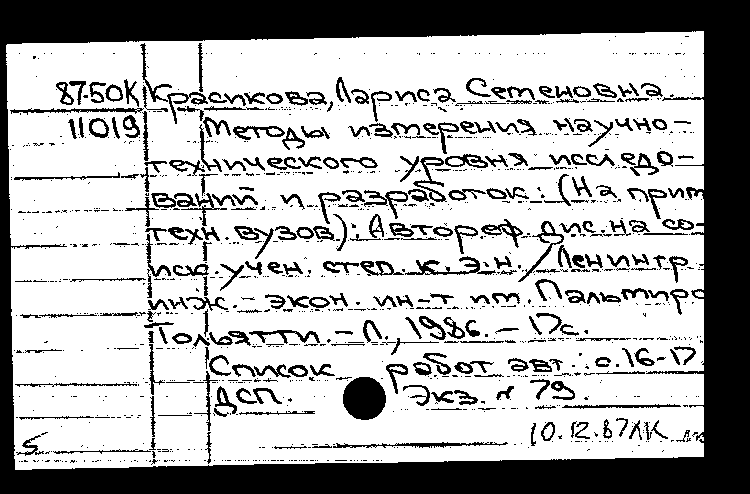 87-50К Красикова, Лариса Семеновна.
11019 Методы измерения научно-
технического уровня исследо-
ваний и разработок: (На прим
техн. вузов): Автореф. дис. на со-
иск. учен. степ. к. э. н. / Ленингр.
инж.-экон. ин-т им. Пальмиро
Тольятти. - Л., 1986. - 17 с.
Список работ авт.: с. 16-17
ДСП. Экз. № 79.
10.12.87 ЛК
5